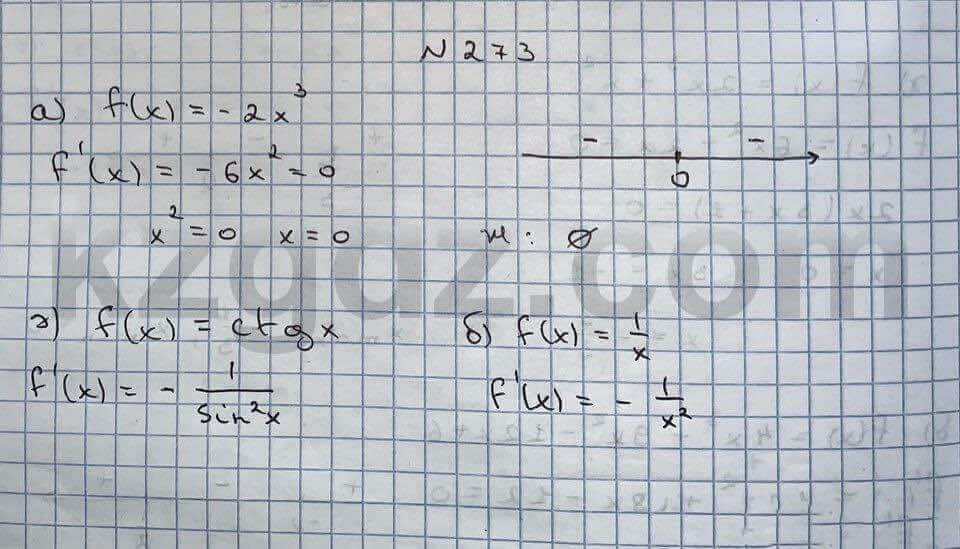 N 273
а) f(x) = - 2x³
f'(x) = - 6x² = 0
- -
0
x² = 0 x = 0
м : ∅
kzgdz.com
г) f(x) = ctg x
f'(x) = - 1/sin²x
б) f(x) = 1/x
f'(x) = - 1/x²